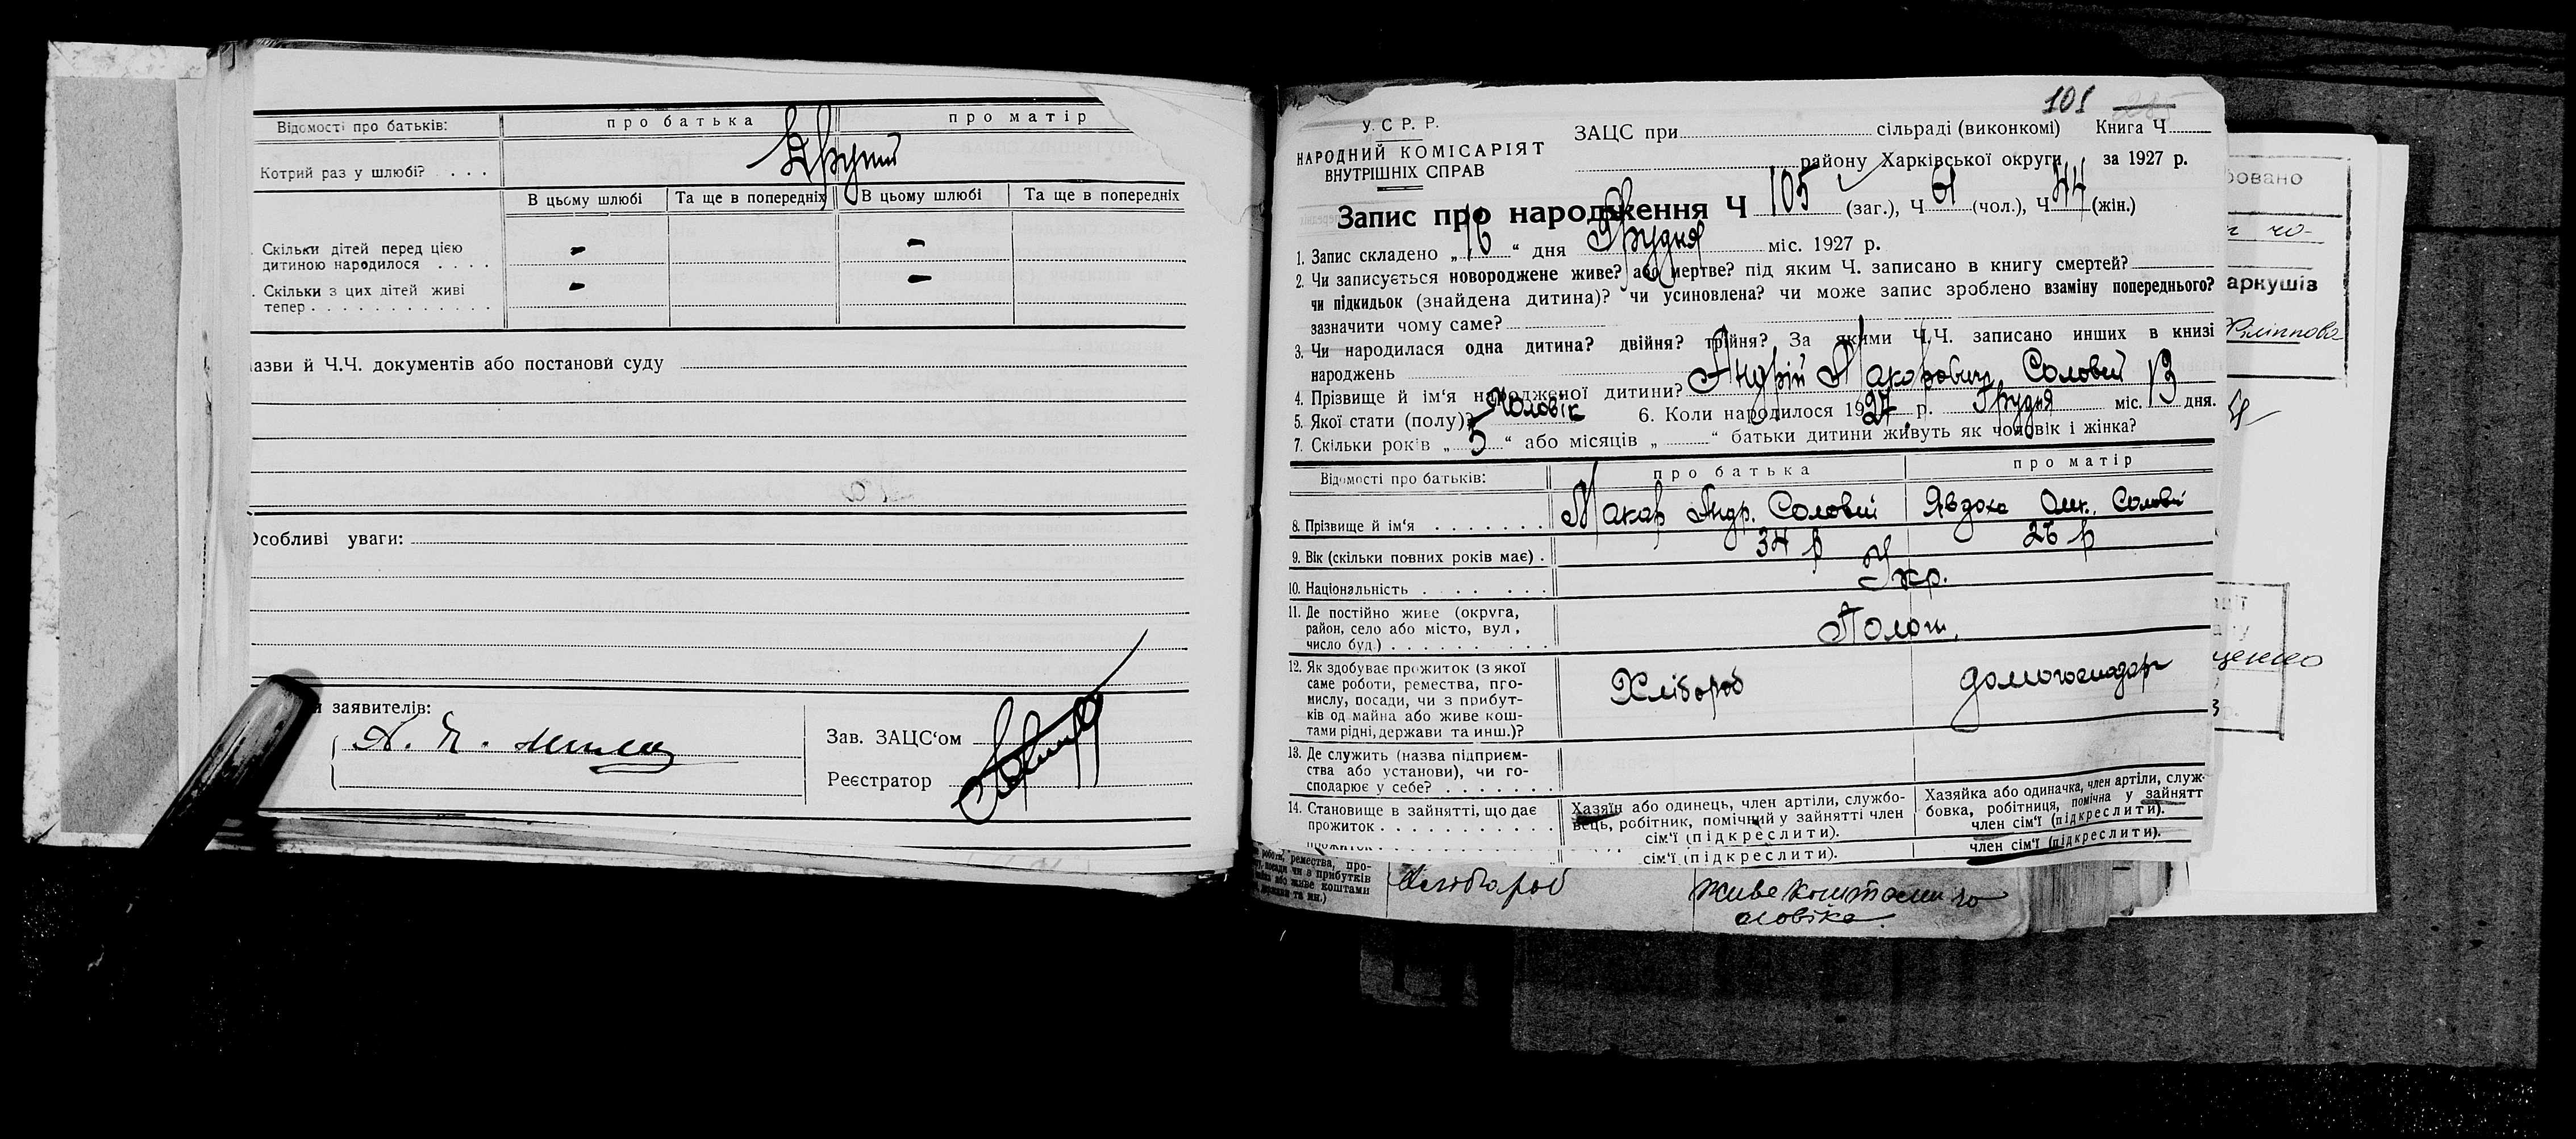 Відомості про батьків: про батька про матір
Котрий раз у шлюбі? . . . .
В цьому шлюбі Та ще в попередніх В цьому шлюбі Та ще в попередніх
Скільки дітей перед цією - -
дитиною народилося . . . .
. Скільки з цих дітей живі - -
тепер . . . . . . . . . . . .
азви й Ч.Ч. документів або постанови суду
Особливі уваги:
заявителів:
Зав. ЗАЦС‘ом
Реєстратор
101
У. С Р. Р.
НАРОДНИЙ КОМІСАРІЯТ
ВНУТРІШНІХ СПРАВ
ЗАЦС при сільраді (виконкомі) Книга Ч
району Харківської округи за 1927 р.
Запис про народження Ч 105 (заг.), Ч 61 (чол.), Ч 44 (жін.)
1. Запис складено „ 16 “ дня Грудня міс. 1927 р.
2. Чи записується новороджене живе? або мертве? під яким Ч. записано в книгу смертей?
чи підкидьок (знайдена дитина)? чи усиновлена? чи може запис зроблено взаміну попереднього?
зазначити чому саме?
3. Чи народилася одна дитина? двійня? трійня? За якими Ч.Ч. записано инших в книзі
народжень
4. Прізвище й ім‘я народженої дитини? Андрій Макарович Соловей
5. Якої стати (полу)? Чоловік 6. Коли народилося 1927 р. Грудня міс. 13 дня.
7. Скільки років „ 5 “ або місяців „ “ батьки дитини живуть як чоловік і жінка?
Відомості про батьків: про батька про матір
8. Прізвище й ім‘я . . . . . . . Макар Андр. Соловей Явдоха Соловей
9. Вік (скільки повних років має) . 34 р 26 р
10. Національність . . . . . . . Укр.
11. Де постійно живе (округа,
район, село або місто, вул,
число буд.) . . . . . . . . .
12. Як здобуває прожиток (з якої Хлібороб домогосподар
саме роботи, ремества, про-
мислу, посади, чи з прибут-
ків од майна або живе кош-
тами рідні, держави та инш.)?
13. Де служить (назва підприєм-
ства або установи), чи го-
сподарює у себе? . . . . . . .
14. Становище в зайнятті, що дає
прожиток . . . . . . . . . . .
Хазяїн або одинець, член артіли, службо-
вець, робітник, помічний у зайнятті член
сім‘ї (підкреслити).
Хазяйка або одиначка, член артіли, служ-
бовка, робітниця, помічна у зайнятт
член сім‘ї (підкреслити).
сім‘ї (підкреслити). член сім‘ї (підкреслити).
ремества, про-
чи з прибутків
або живе коштами
держави та ин.)
Хлібороб
живе коштами чо
ловіка.
аркушів